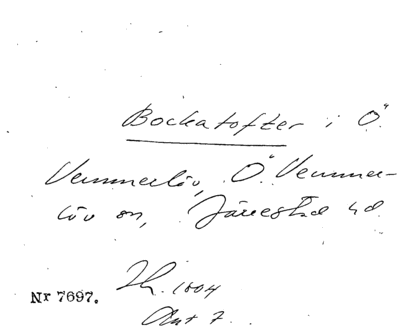 Bockatofter i Ö.
Vemmerlöv, Ö. Vemmer-
löv sn, Järrestad hd
Nr 7697.
1804
Akt 7.